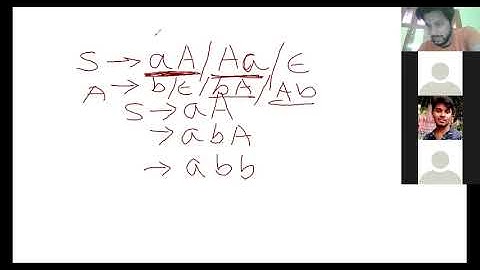 S → aA/Aa/ε
A → b/ε/bA/Ab
S → aA
→ abA
→ abb